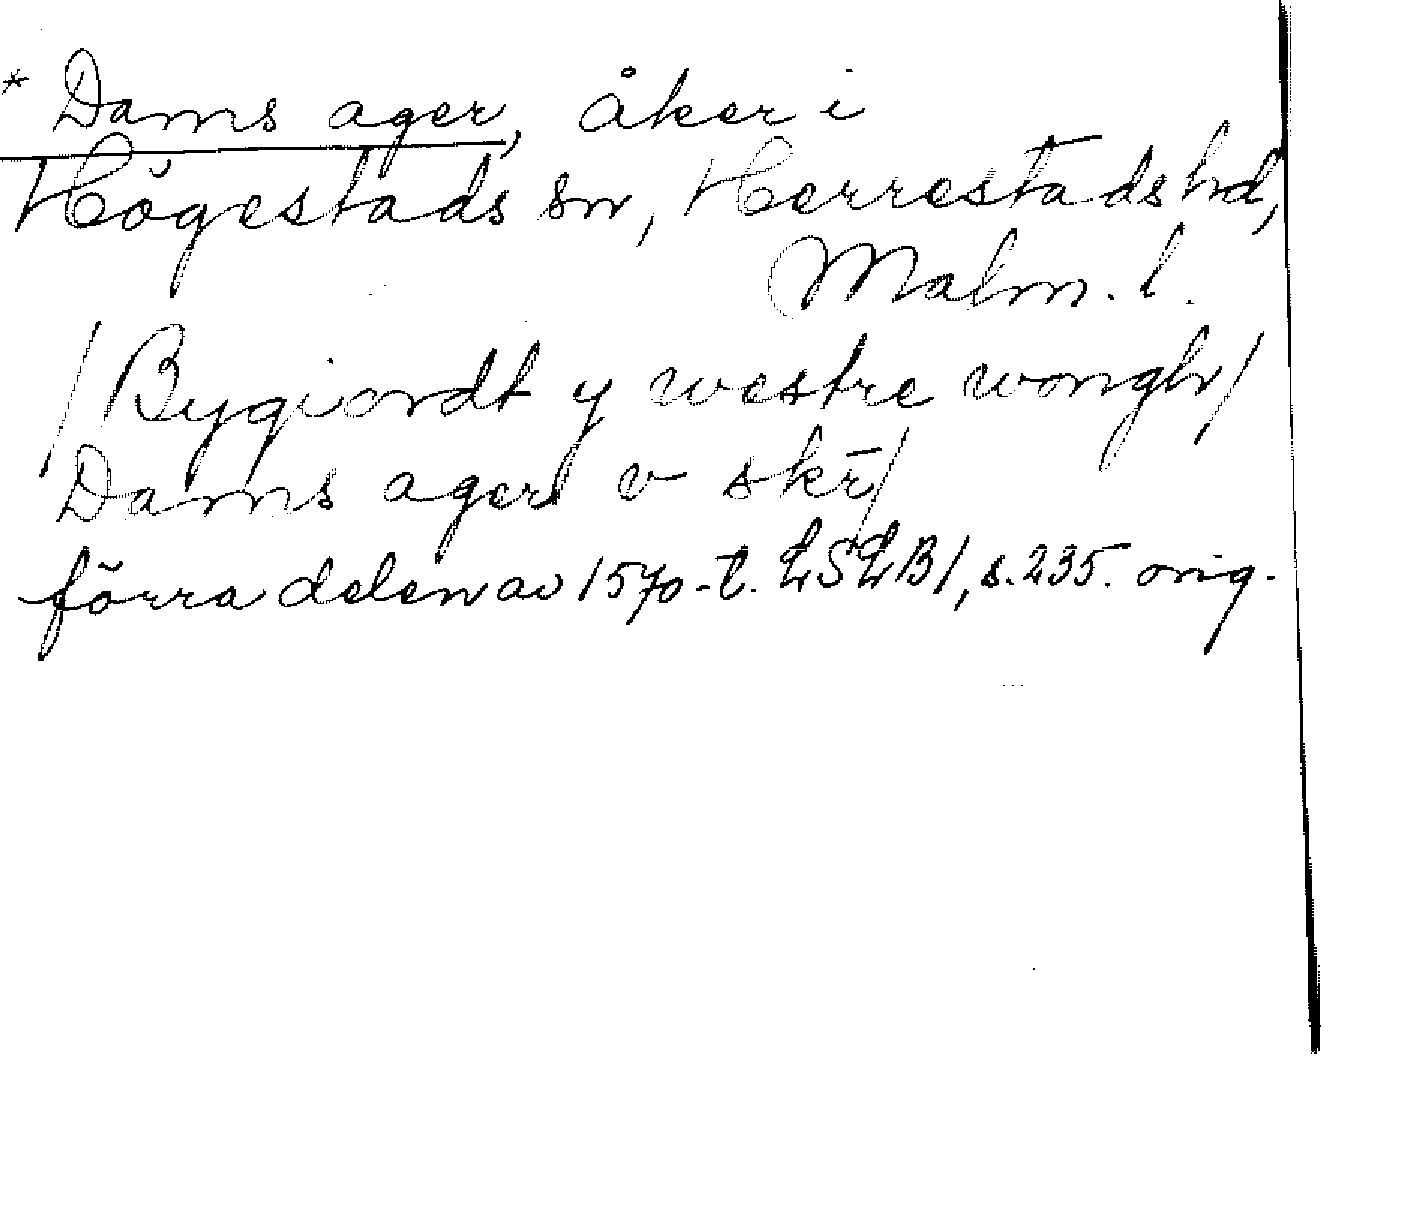 * Dams ager, åker i
Högestads sn, Herrestads hd,
Malm. l.
/Bygiordt y westre wongh/
Dams ager v skr̄/
förra delen av 1570-t. LSLB1, s. 235. orig.